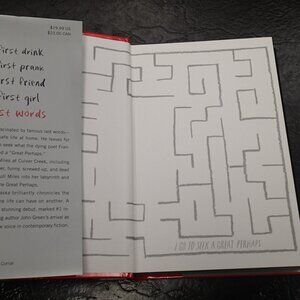 $19.99 US
first drink
first prank
first friend
first girl
st words
ascinated by famous last words—
safe life at home. He leaves for
seek what the dying poet Fran-
d a "Great Perhaps."
Culver Creek, including
er, funny, screwed-up, and dead
ull Miles into her labyrinth and
e Great Perhaps.
aska brilliantly chronicles the
ne life can have on another. A
stunning debut, marked #1 in-
ng author John Green's arrival as
new voice in contemporary fiction.
I GO TO SEEK A GREAT PERHAPS